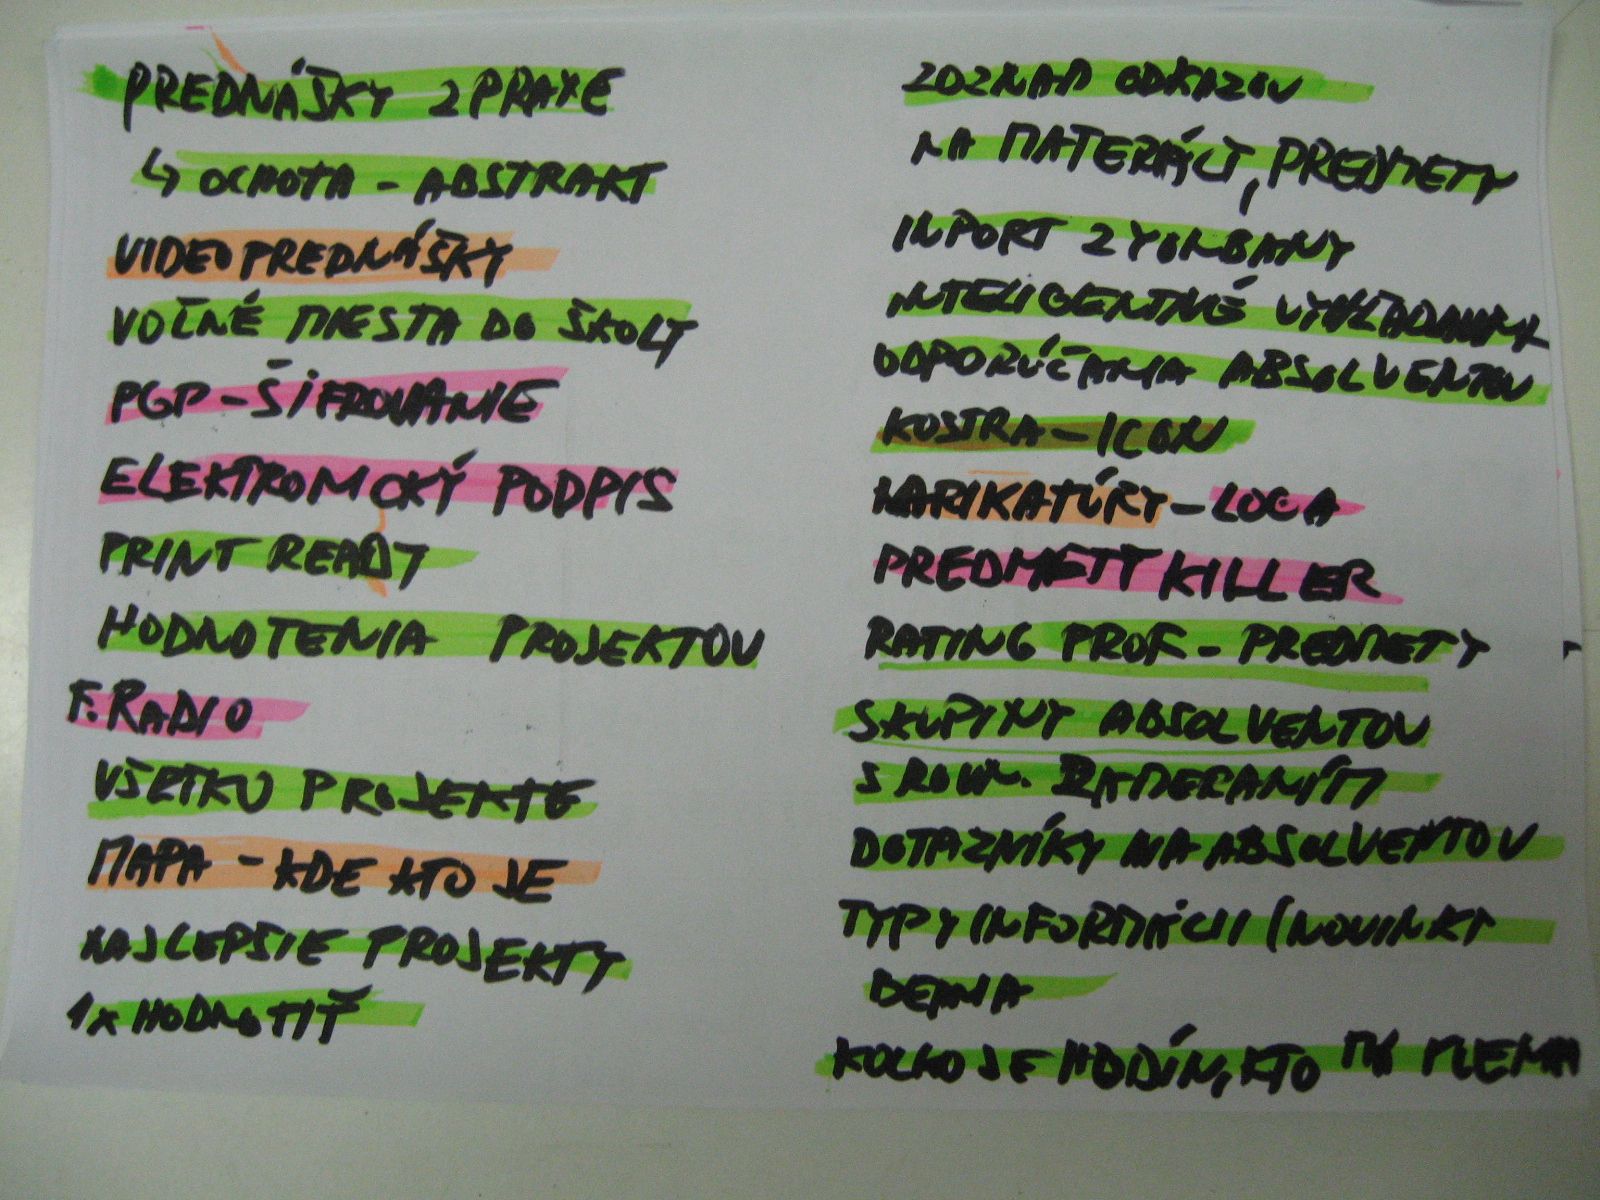 PREDNÁŠKY Z PRAXE
↳ OCHOTA - ABSTRAKT
VIDEOPREDNÁŠKY
VOĽNÉ MIESTA DO ŠKOLY
PGP - ŠIFROVANIE
ELEKTRONICKÝ PODPIS
PRINT READY
HODNOTENIA PROJEKTOV
F. RADIO
VŠETKO PROJEKTE
MAPA - KDE KTO JE
NAJLEPSIE PROJEKTY
1X HODNOTIŤ
ZOZNAM ODKAZOV
NA MATERIÁLY, PREDMETY
IMPORT Z YONBANY
INTELIGENTNÉ
ODPORÚČANIA ABSOLVENTOV
KOSTRA - ICON
KARIKATÚRY - LOGA
PREDMETY KILLER
RATING PROF. - PREDMETY
SKUPINY ABSOLVENTOV
S ROVN. ZAMERANÍM
DOTAZNÍKY NA ABSOLVENTOV
TYPY INFORMÁCII (NOVINKY
DENNIA
KOLKO JE HODÍN, KTO MÁ MENA